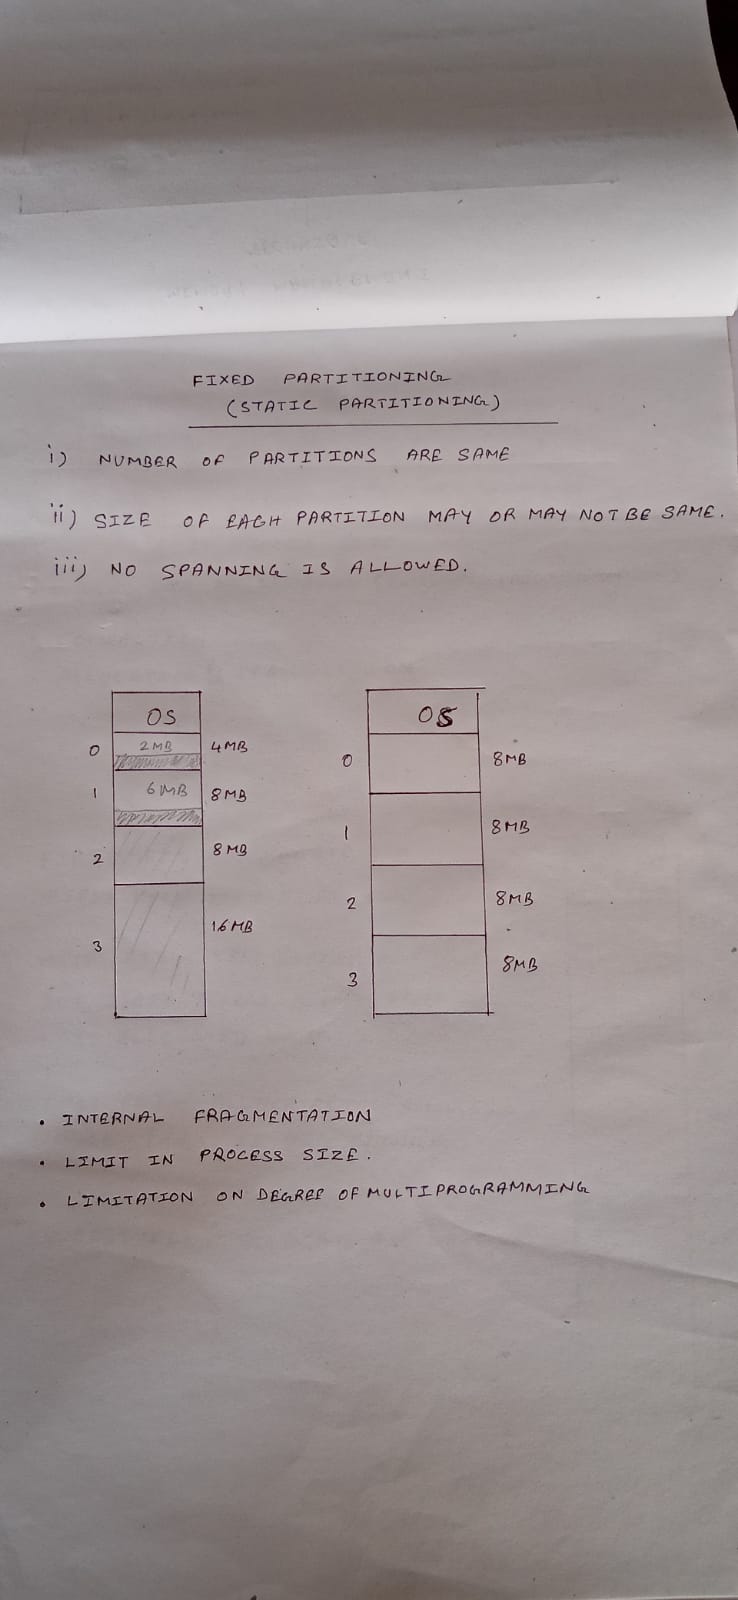 FIXED PARTITIONING
(STATIC PARTITIONING)
i) NUMBER OF PARTITIONS ARE SAME
ii) SIZE OF EACH PARTITION MAY OR MAY NOT BE SAME.
iii) NO SPANNING IS ALLOWED.
OS
0 2MB 4MB
1 6MB 8MB
2 8MB
3 16MB
OS
0 8MB
1 8MB
2 8MB
3 8MB
• INTERNAL FRAGMENTATION
• LIMIT IN PROCESS SIZE.
• LIMITATION ON DEGREE OF MULTIPROGRAMMING